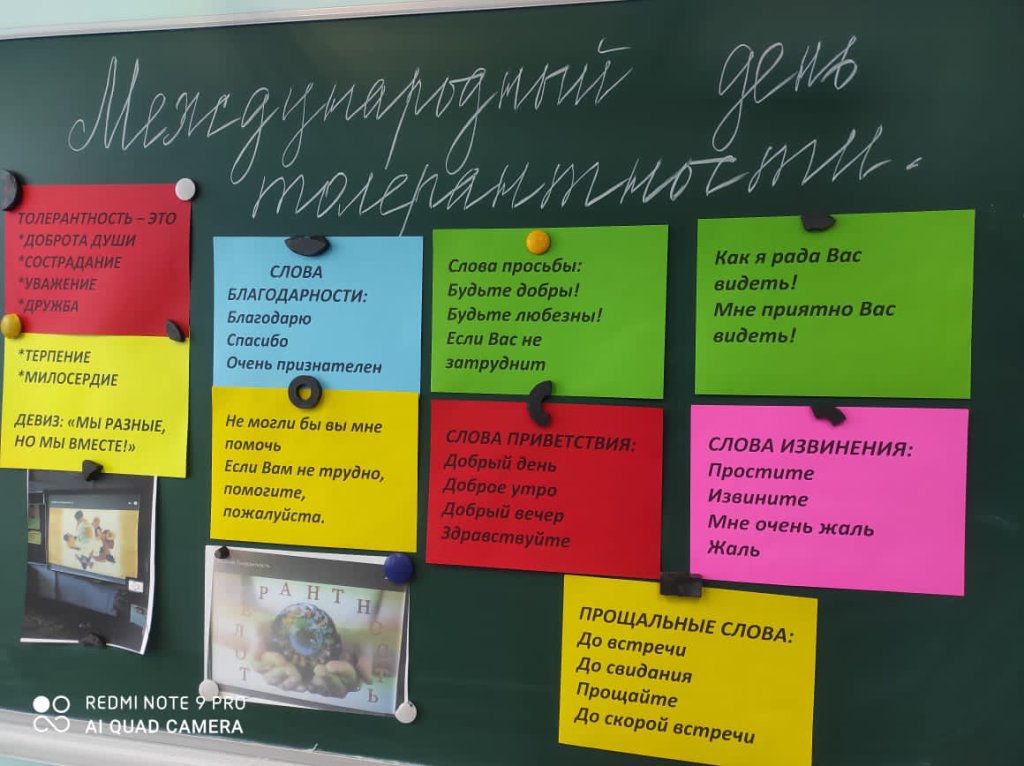 Международный день
толерантности.
ТОЛЕРАНТНОСТЬ – ЭТО
*ДОБРОТА ДУШИ
*СОСТРАДАНИЕ
*УВАЖЕНИЕ
*ДРУЖБА
*ТЕРПЕНИЕ
*МИЛОСЕРДИЕ
ДЕВИЗ: «МЫ РАЗНЫЕ,
НО МЫ ВМЕСТЕ!»
СЛОВА
БЛАГОДАРНОСТИ:
Благодарю
Спасибо
Очень признателен
Не могли бы вы мне
помочь
Если Вам не трудно,
помогите,
пожалуйста.
Слова просьбы:
Будьте добры!
Будьте любезны!
Если Вас не
затруднит
СЛОВА ПРИВЕТСТВИЯ:
Добрый день
Доброе утро
Добрый вечер
Здравствуйте
Как я рада Вас
видеть!
Мне приятно Вас
видеть!
СЛОВА ИЗВИНЕНИЯ:
Простите
Извините
Мне очень жаль
Жаль
ПРОЩАЛЬНЫЕ СЛОВА:
До встречи
До свидания
Прощайте
До скорой встречи
ТОЛЕРАНТНОСТЬ
REDMI NOTE 9 PRO
AI QUAD CAMERA